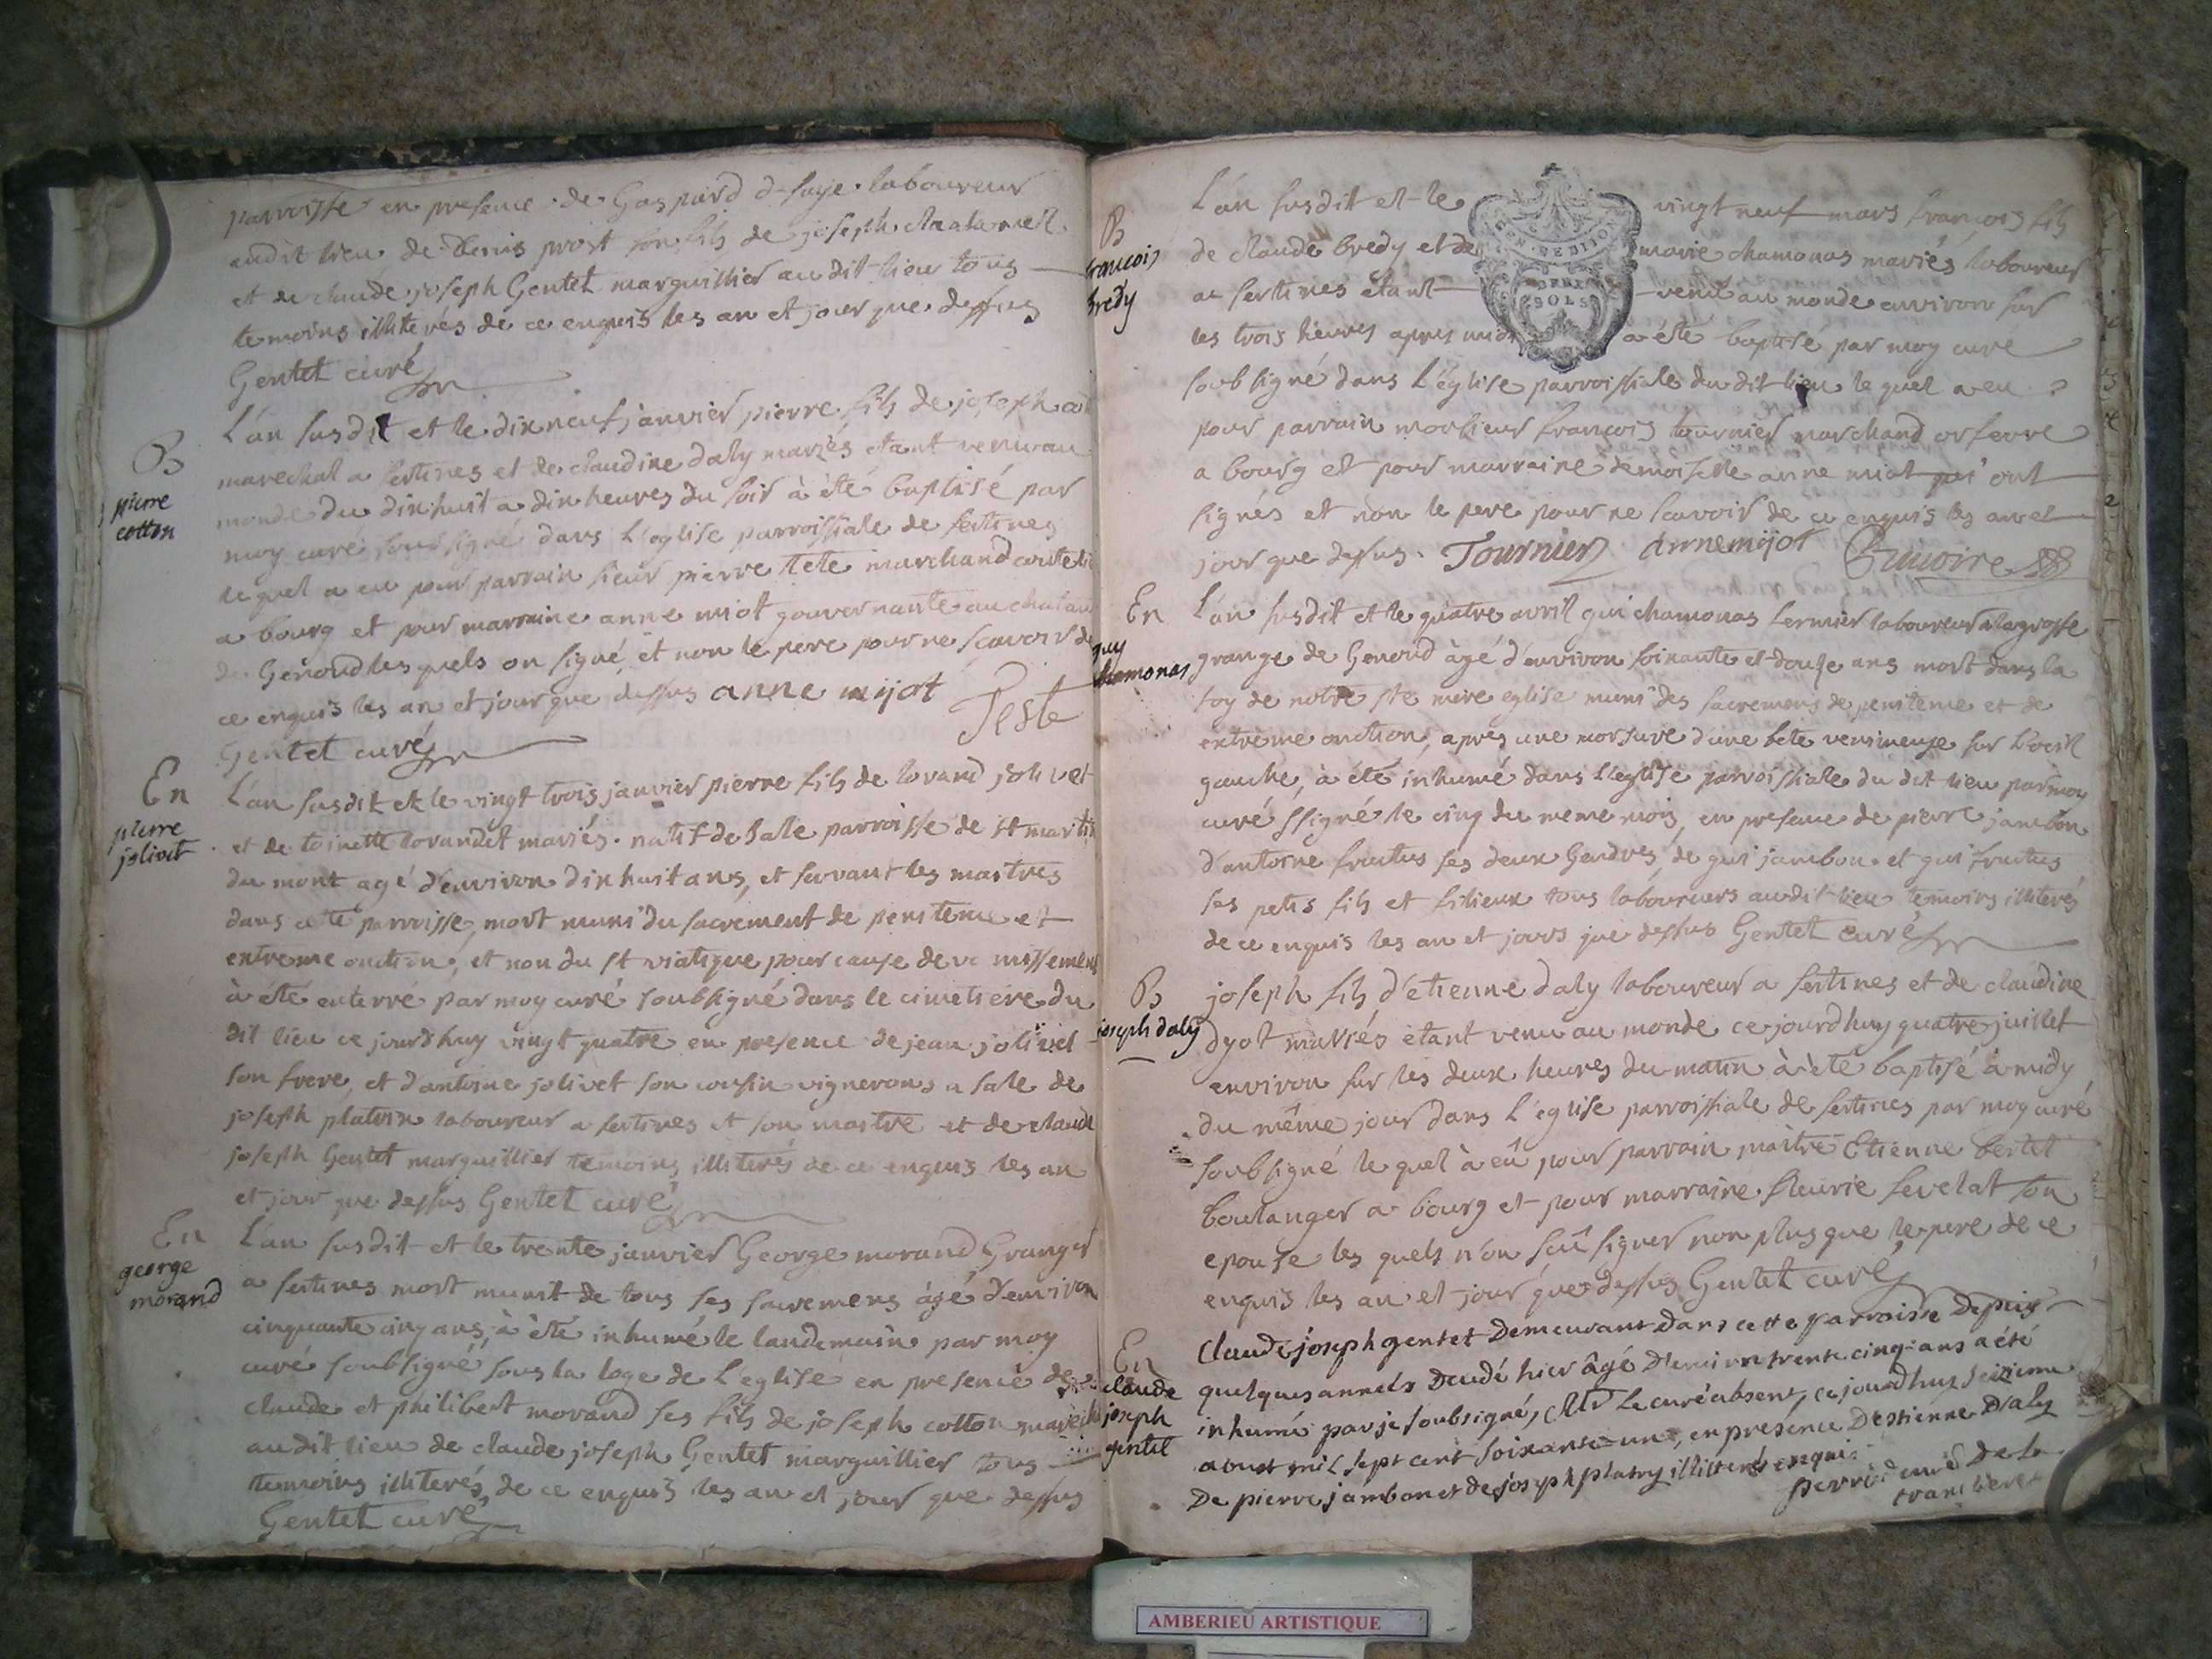 parroisse en presence de Gaspard dufaye laboureur
audit lieu de Denis prost son fils de joseph
et de claude joseph Gentet marguillier audit lieu tous
temoins illiterés de ce enquis les an et jour que dessus
Gentet curé
B
pierre
cotton
L'an susdit et le dix neuf janvier pierre fils de joseph
marechal a sertines et de claudine daly mariés etant venu au
monde du dixhuit a dix heures du soir à été baptisé par
moy curé soubsigné dans L'eglise parroissiale de sertines
lequel a eu pour parrain sieur pierre tete marchand
a bourg et pour marraine anne miot gouvernante au chatau
de Genoud lesquels on signé, et non le pere pour ne scavoir de
ce enquis les an et jour que dessus anne mijot Teste
Gentet curé
En
pierre
jolivet
L'an susdit et le vingt trois janvier pierre fils de lorand jolivet
et de toinette lorandet mariés. natif de Sale parroisse de st martin
du mont agé d'environ dixhuit ans, et servant les maitres
dans cette parroisse, mort muni du sacrement de penitence et
extreme onction, et non du st viatique pour cause de vomissement
à été enterré par moy curé soubsigné dans le cimetiere du
dit lieu ce jourdhuy vingt quatre en presence de jean jolivet
son frere, et d'antoine jolivet son cousin vignerons a sale de
joseph platvin laboureur a sertines et son maitre et de claude
joseph Gentet marguillier temoins illiterés de ce enquis les an
et jour que dessus Gentet curé
En
george
morand
L'an susdit et le trente janvier George morand Granger
a sertines mort munit de tous ses sacremens àgé d'environ
cinquante cinq ans, à été inhumé le landemain par moy
curé soubsigné, sous la loge de L'eglise en presence de
claude et philibert morand ses fils de joseph cotton
audit lieu de claude joseph Gentet marguillier tous
temoins illiterés, de ce enquis les an et jour que dessus
Gentet curé
B
francois
bredy
L'an susdit et le vingt neuf mars francois fils
de claude bredy et de marie chamonas mariés laboureur
a sertines etant venu au monde environ sur
les trois heures apres midi a été baptisé par moy curé
soubsigné dans L'église parroissiale du dit lieu le quel a eu
pour parrain monsieur francois tournier marchand orfevre
a bourg et pour marraine demoiselle anne miot qui ont
signés et non le pere pour ne scavoir de ce enquis les an et
jour que dessus. Tournier anne mijot
DEUX
SOLS
En
guy
chamonas
L'an susdit et le quatre avril gui chamonas fermier laboureur a la grosse
grange de Genoud àgé d'environ soixante et douse ans mort dans la
foy de notre ste mere eglise muni des sacremens de penitence et de
extrême onction, après une morsure d'une bete venimeuse sur l'oeil
gauche, à été inhumé dans L'eglise parroissiale du dit lieu par moy
curé ssigné le cinq du meme mois, en presence de pierre jambon
d'antoine frutus ses deux Gendres, de gui jambon et gui frutus
ses petis fils et filieux tous laboureurs audit lieu temoins illiterés
de ce enquis les an et jours que dessus Gentet curé
B
joseph daly
joseph fils d'etienne daly laboureur a sertines et de claudine
dyot mariés étant venu au monde ce jourdhuy quatre juillet
environ sur les deux heures du matin à été baptisé à midy
du même jour dans L'église parroissiale de sertines par moy curé
soubsigné le quel à eû pour parrain maitre Etienne bertet
boulanger a bourg et pour marraine fleurie sevelat son
epouse les quels n'on scû signer non plus que le pere de ce
enquis les an et jour que dessus Gentet curé
En
claude
joseph
gentet
Claude joseph gentet Demeurant dans cette parroisse Depuis
quelques années Decedé hier âgé D'environ trente cinq ans a été
inhumé par je soubsigné, Mr Le curé absent, ce jourdhuy seizieme
aoust mil sept cent soixante un, en presence D'estienne Daly
De pierre jambon et de joseph platry illiterés enquis
curé De la
tranchere
AMBERIEU ARTISTIQUE